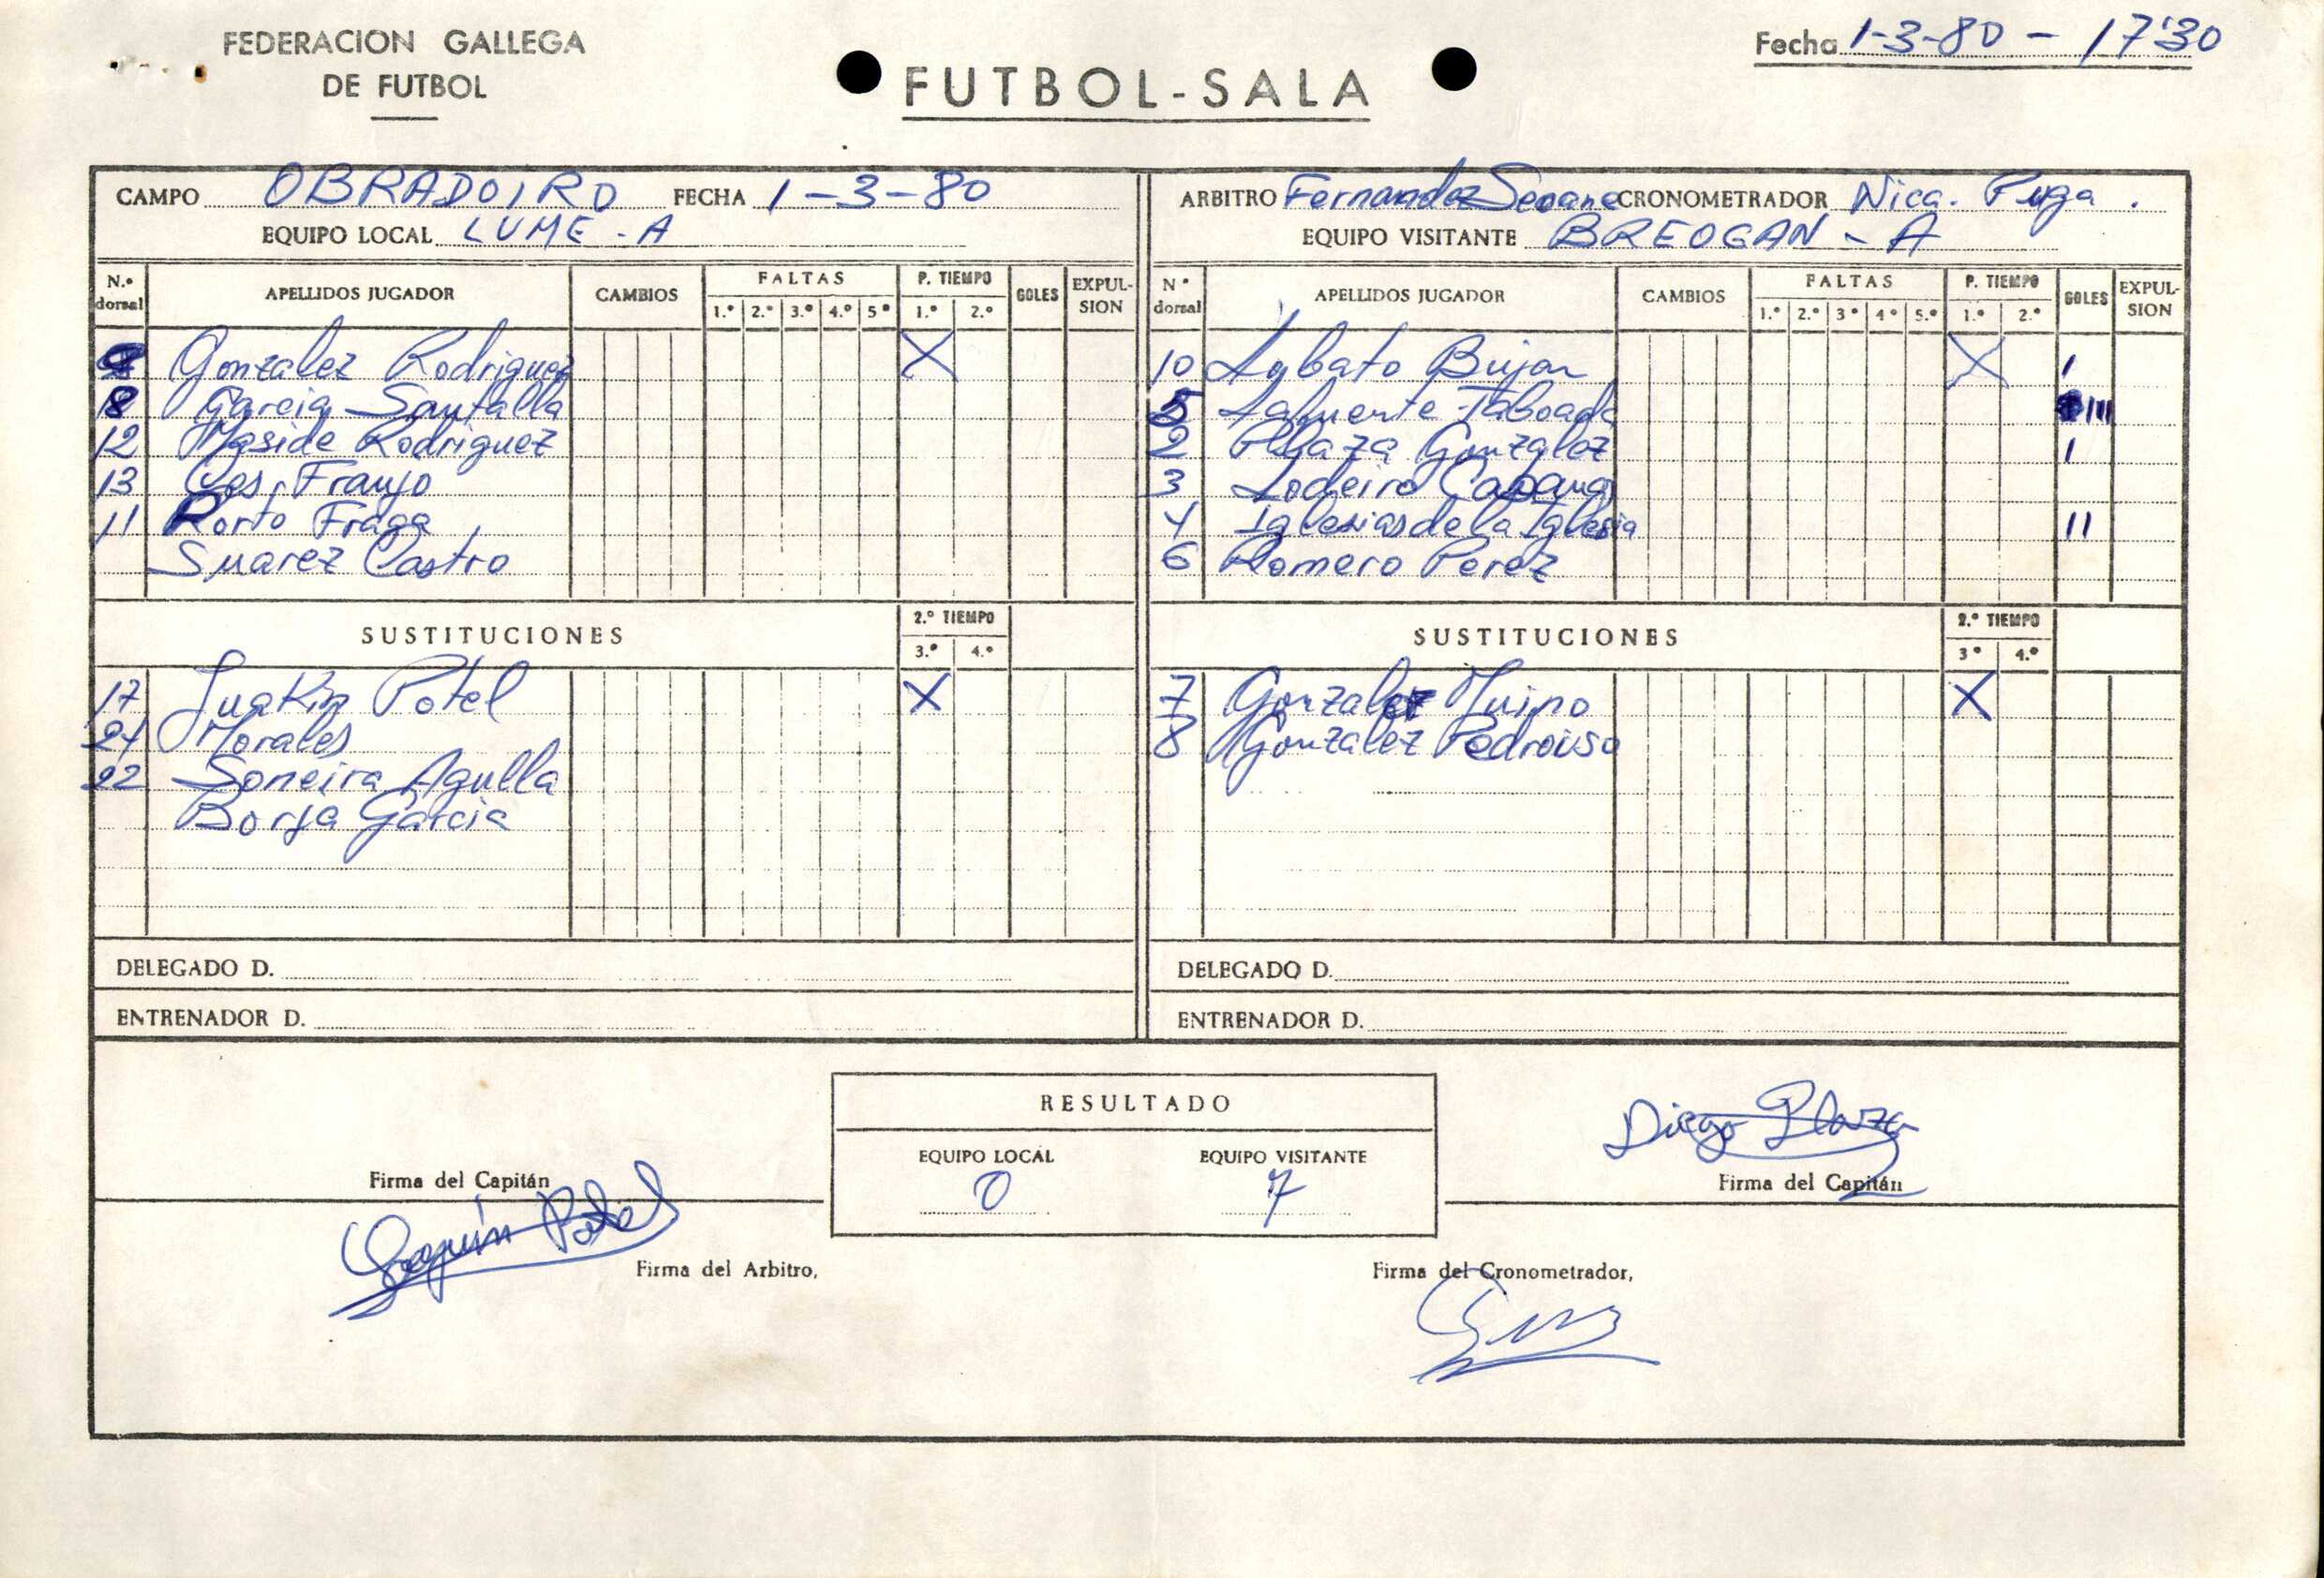 FEDERACION GALLEGA
DE FUTBOL
FUTBOL-SALA
Fecha 1-3-80 - 17'30
CAMPO OBRADOIRO FECHA 1-3-80
EQUIPO LOCAL LUME - A
N.º dorsal APELLIDOS JUGADOR CAMBIOS FALTAS 1.º 2.º 3.º 4.º 5º P. TIEMPO 1.º 2.º GOLES EXPUL-SION
Gonzalez Rodriguez X
8 Garcia Santalla
12 Maside Rodriguez
13 Cos Franjo
11 Porto Fraga
Suarez Castro
SUSTITUCIONES 2.º TIEMPO 3.º 4.º
17 Juakin Potel X
21 Morales
22 Soneira Agulla
Borja Garcia
DELEGADO D.
ENTRENADOR D.
ARBITRO Fernandez Seoane CRONOMETRADOR Nica. Puga .
EQUIPO VISITANTE BREOGAN - A
Nº dorsal APELLIDOS JUGADOR CAMBIOS FALTAS 1.º 2.º 3º 4º 5.º P. TIEMPO 1.º 2.º GOLES EXPUL-SION
10 Lobato Bujan X I
5 Lafuente Taboada III
2 Plaza Gonzalez I
3 Lodeiro
4 Iglesias de la Iglesia II
6 Romero Perez
SUSTITUCIONES 2.º TIEMPO 3º 4.º
7 Gonzalez Muino X
8 Gonzalez Pedrouso
DELEGADO D.
ENTRENADOR D.
RESULTADO
EQUIPO LOCAL EQUIPO VISITANTE
0 7
Firma del Capitán
Joaquín Potel
Diego Plaza
Firma del Capitán
Firma del Arbitro,
Firma del Cronometrador,